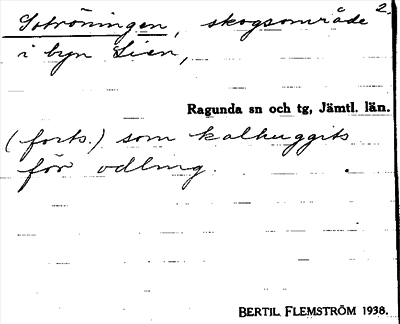 Sotröningen, skogsområde 2.
i byn Lien,
Ragunda sn och tg, Jämtl. län.
(forts.) som kalhuggits
för odling.
BERTIL FLEMSTRÖM 1938.